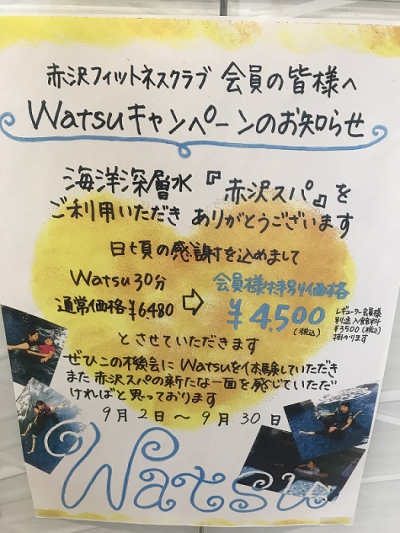 赤沢フィットネスクラブ 会員の皆様へ
Watsuキャンペーンのお知らせ
海洋深層水『赤沢スパ』を
ご利用いただき ありがとうございます
日頃の感謝を込めまして
Watsu 30分
通常価格¥6480
⇨
会員様特別価格
¥4,500
(税込)
レギュラー会員様
別途入会料
¥3500(税込)
掛かります
とさせていただきます
ぜひこの機会に Watsuを体験していただき
また赤沢スパの新たな一面を感じていただ
ければと思っております
9月2日〜9月30日
Watsu